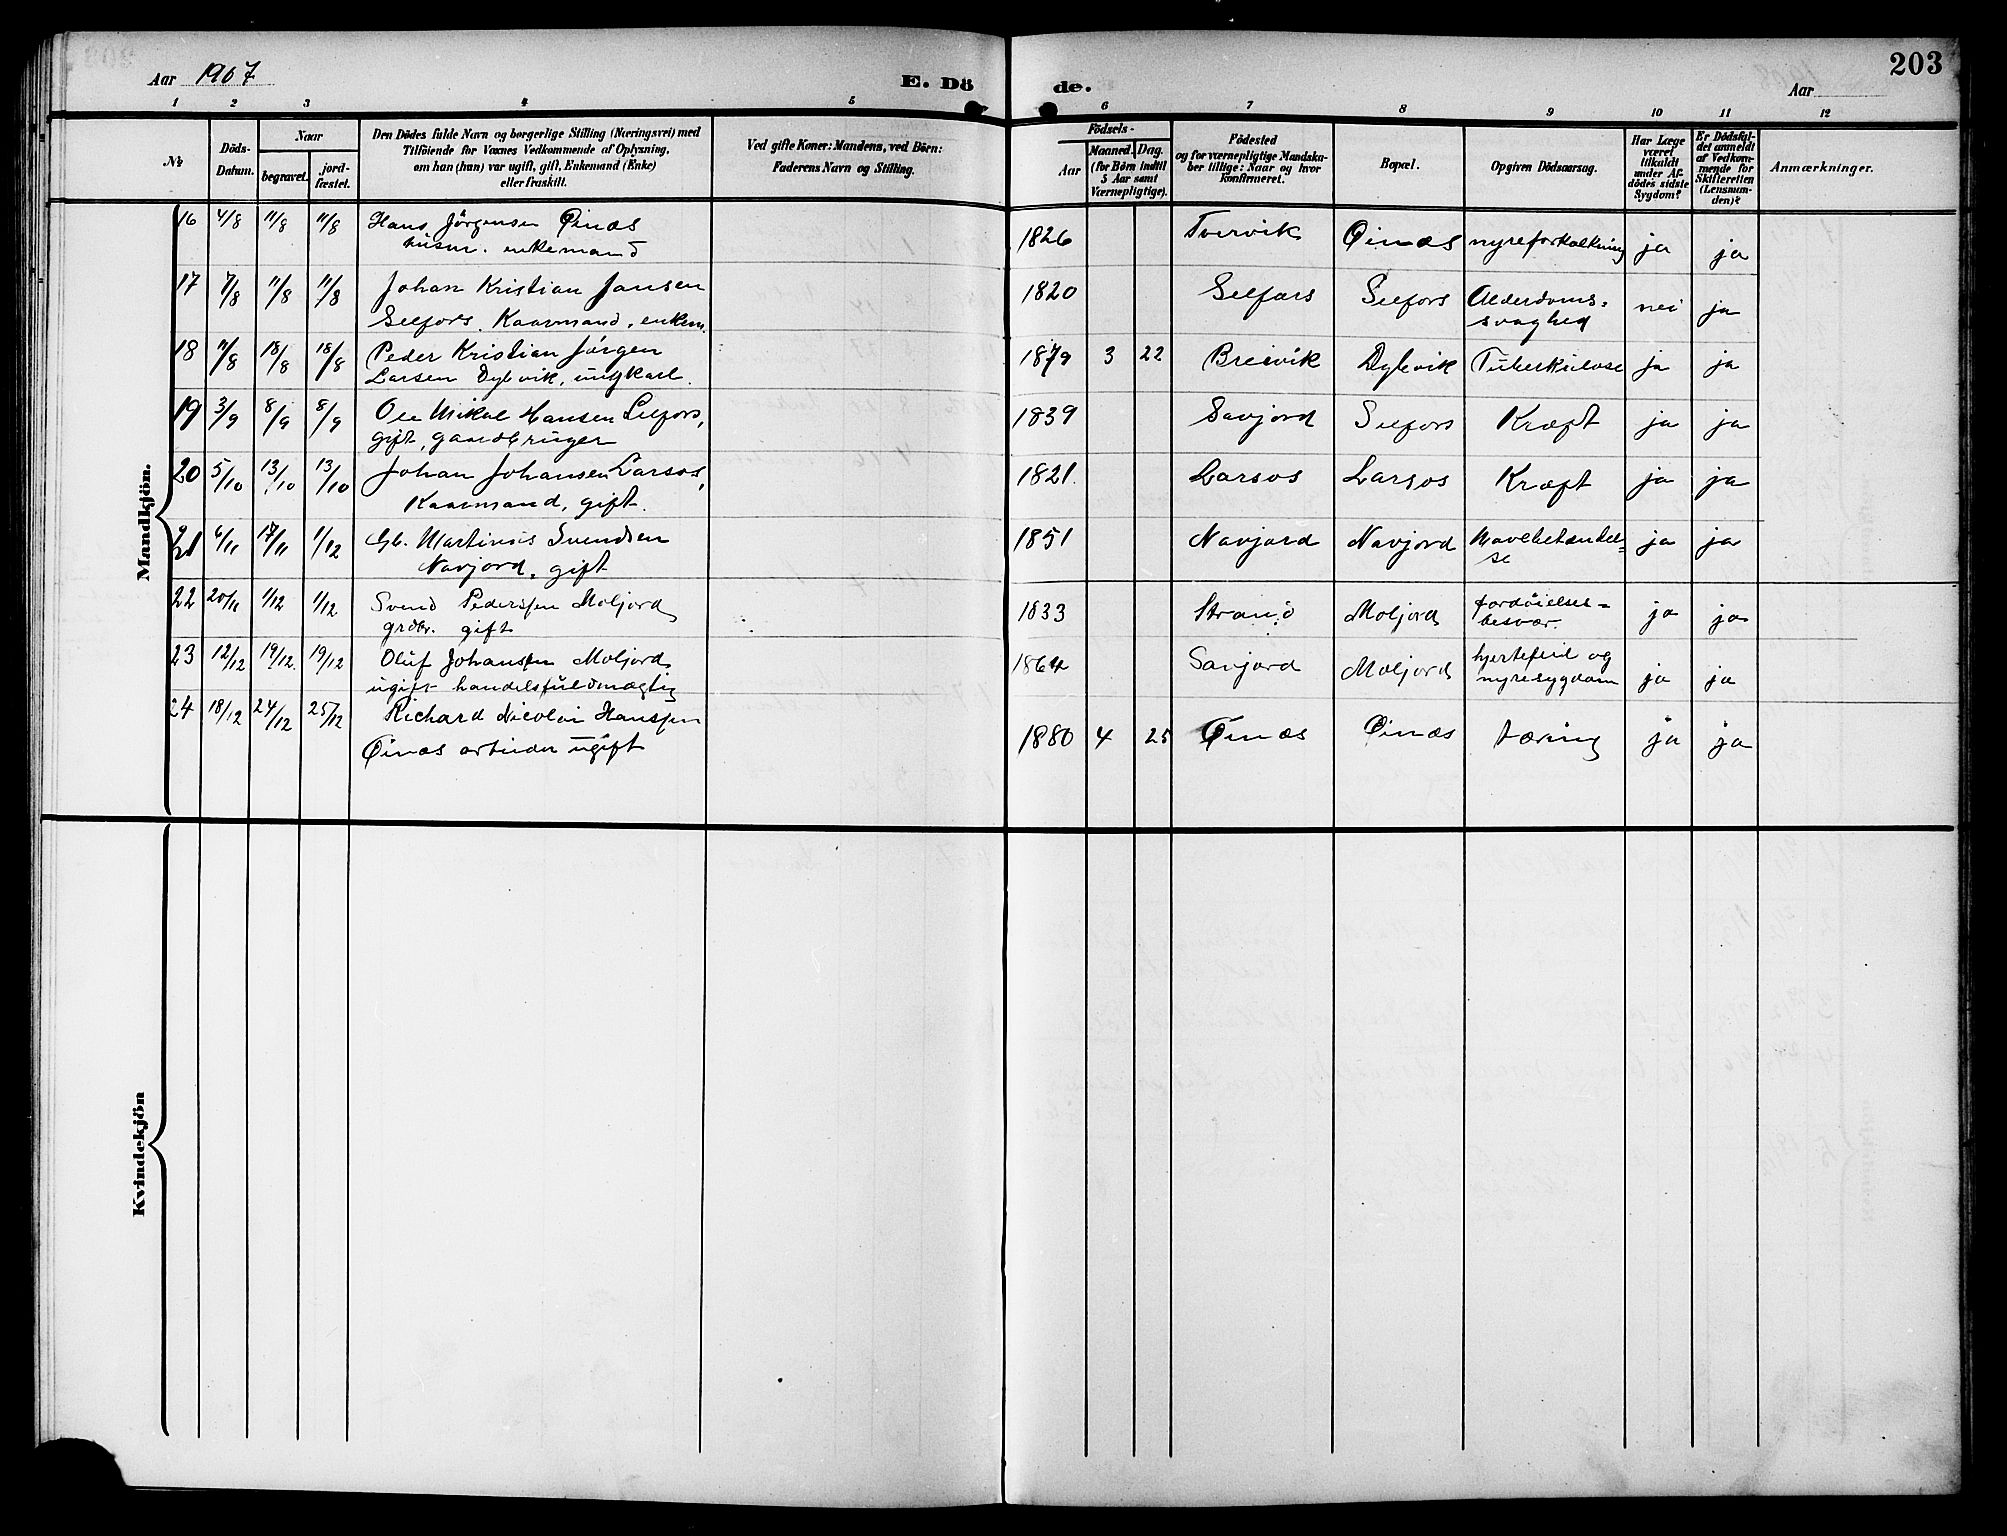 203
Aar 1907
E. Dö
de.
Aar
1 2 3 4 5 6 7 8 9 10 11 12
№
Döds-Datum.
Naar
begravet.
jord-fæstet.
Den Dödes fulde Navn og borgerlige Stilling (Næringsvei) med
Tilföiende for Voxnes Vedkommende af Oplysning,
om han (hun) var ugift, gift, Enkemand (Enke)
eller fraskilt.
Ved gifte Koner: Mandens, ved Börn:
Faderens Navn og Stilling.
Födsels-
Aar
Maaned. Dag.
(for Börn indtil
5 Aar samt
Værnepligtige).
Födested
og for værnepligtige Mandska-
ber tillige: Naar og hvor
konfirmeret.
Bopæl.
Opgiven Dödsaarsag.
Har Læge
været
tilkaldt
under Af-
dödes sidste
Sygdom?
Er Dödsfal-
det anmeldt
af Vedkom-
mende for
Skifteretten
(Lensman-
den)?
Anmærkninger.
Mandkjön.
16 4/8 11/8 11/8 Hans Jörgensen Öinæs 1826 Tvervik Öinæs nyreforkalkning ja ja
husm. enkemand
17 7/8 11/8 11/8 Johan Kristian Jansen 1820 Selfors Selfors Alderdoms- nei ja
Selfors. Kaarmand, enkem. svaghed
18 11/8 18/8 18/8 Peder Kristian Jörgen 1879 3 22 Breivik Dybvik Tuberkulose ja ja
Larsen Dybvik, ungkarl.
19 3/9 8/9 8/9 Ole Mikal Hansen Selfors, 1839 Savjord Selfors Kræft ja ja
gift, gaardbruger
20 5/10 13/10 13/10 Johan Johansen Larsos, 1821. Larsos Larsos Kræft ja ja
Kaarmand, gift.
21 6/11 17/11 1/12 Gb. Martinus Svendsen 1851 Navjord Navjord Mavebetændel= ja ja
Navjord, gift se
22 20/11 1/12 1/12 Svend Pederssen Moljord 1833 Strand Moljord fordöielses= ja ja
grdbr. gift besvær.
23 12/12 19/12. 19/12 Oluf Johanssen Moljord 1864 Savjord Moljord hjertefeil og ja ja
ugift handelsfuldmægtig nyresygdom
24 18/12 24/12 25/12 Richard Nicolai Hanssen 1880 4 25 Öinæs Öinæs tæring ja ja
Öinæs arbeider ugift
Kvindekjön